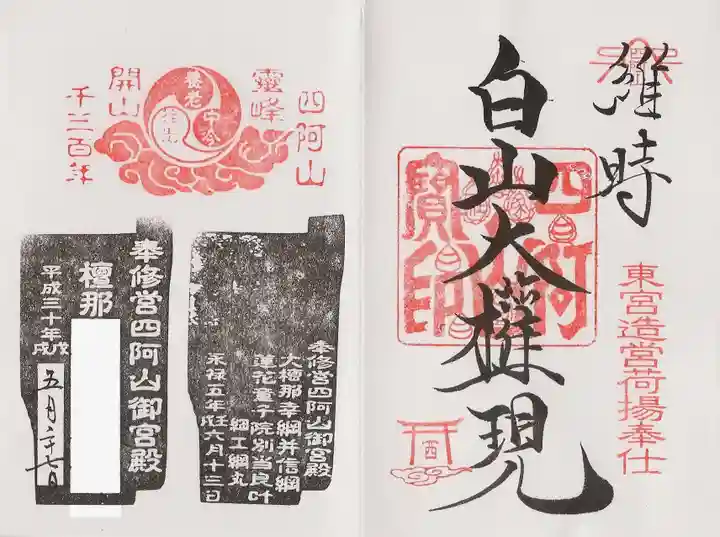 維時
白山大権現
四阿山
寳印
東宮造営荷揚奉仕
西
四阿山
靈峰
開山
千三百年
養老
奉修営四阿山御宮殿
大檀那幸綱并信綱
蓮花童子院別当良叶
細工綱丸
永禄五年壬戌六月十三日
奉修営四阿山御宮殿
檀那
平成三十年戊戌
五月二十七日